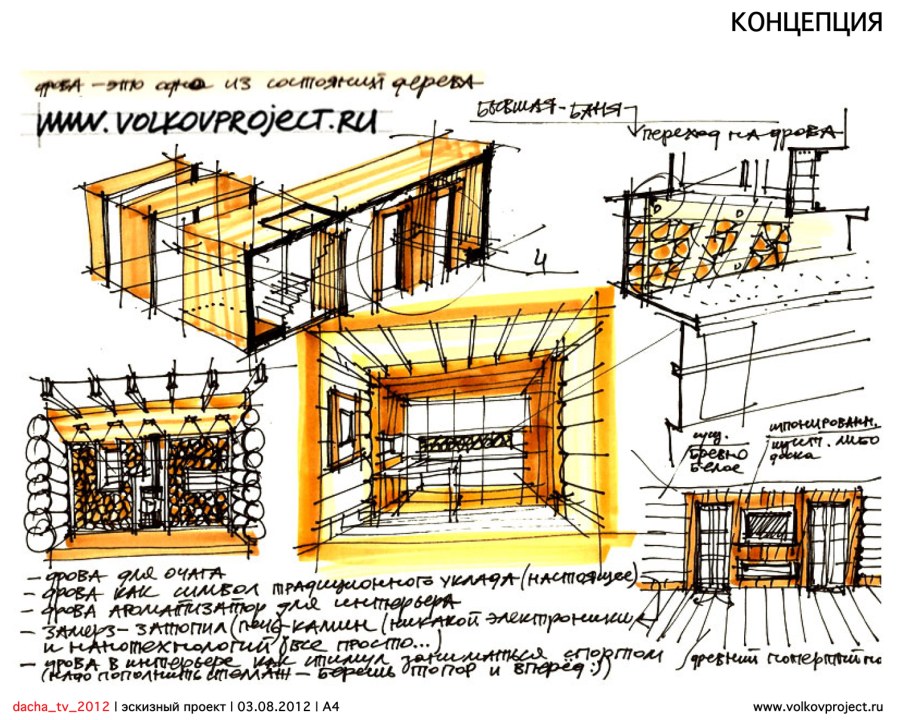 КОНЦЕПЦИЯ
дрова – это одно из состояний дерева
www.volkovproject.ru
бывшая баня
переход на дрова
4
сущ.
бревно
белое
шпонированн.
щит. либо
доска
– дрова для очага
– дрова как символ традиционного уклада (настоящее)
– дрова ароматизатор для интерьера
– замерз – затопил (печь) – камин (никакой электроники
и нанотехнологий (все просто...)
– дрова в интерьере как стимул заниматься спортом
(надо пополнить стеллаж – берешь топор и вперед :))
древний
dacha_tv_2012 | эскизный проект | 03.08.2012 | А4
www.volkovproject.ru